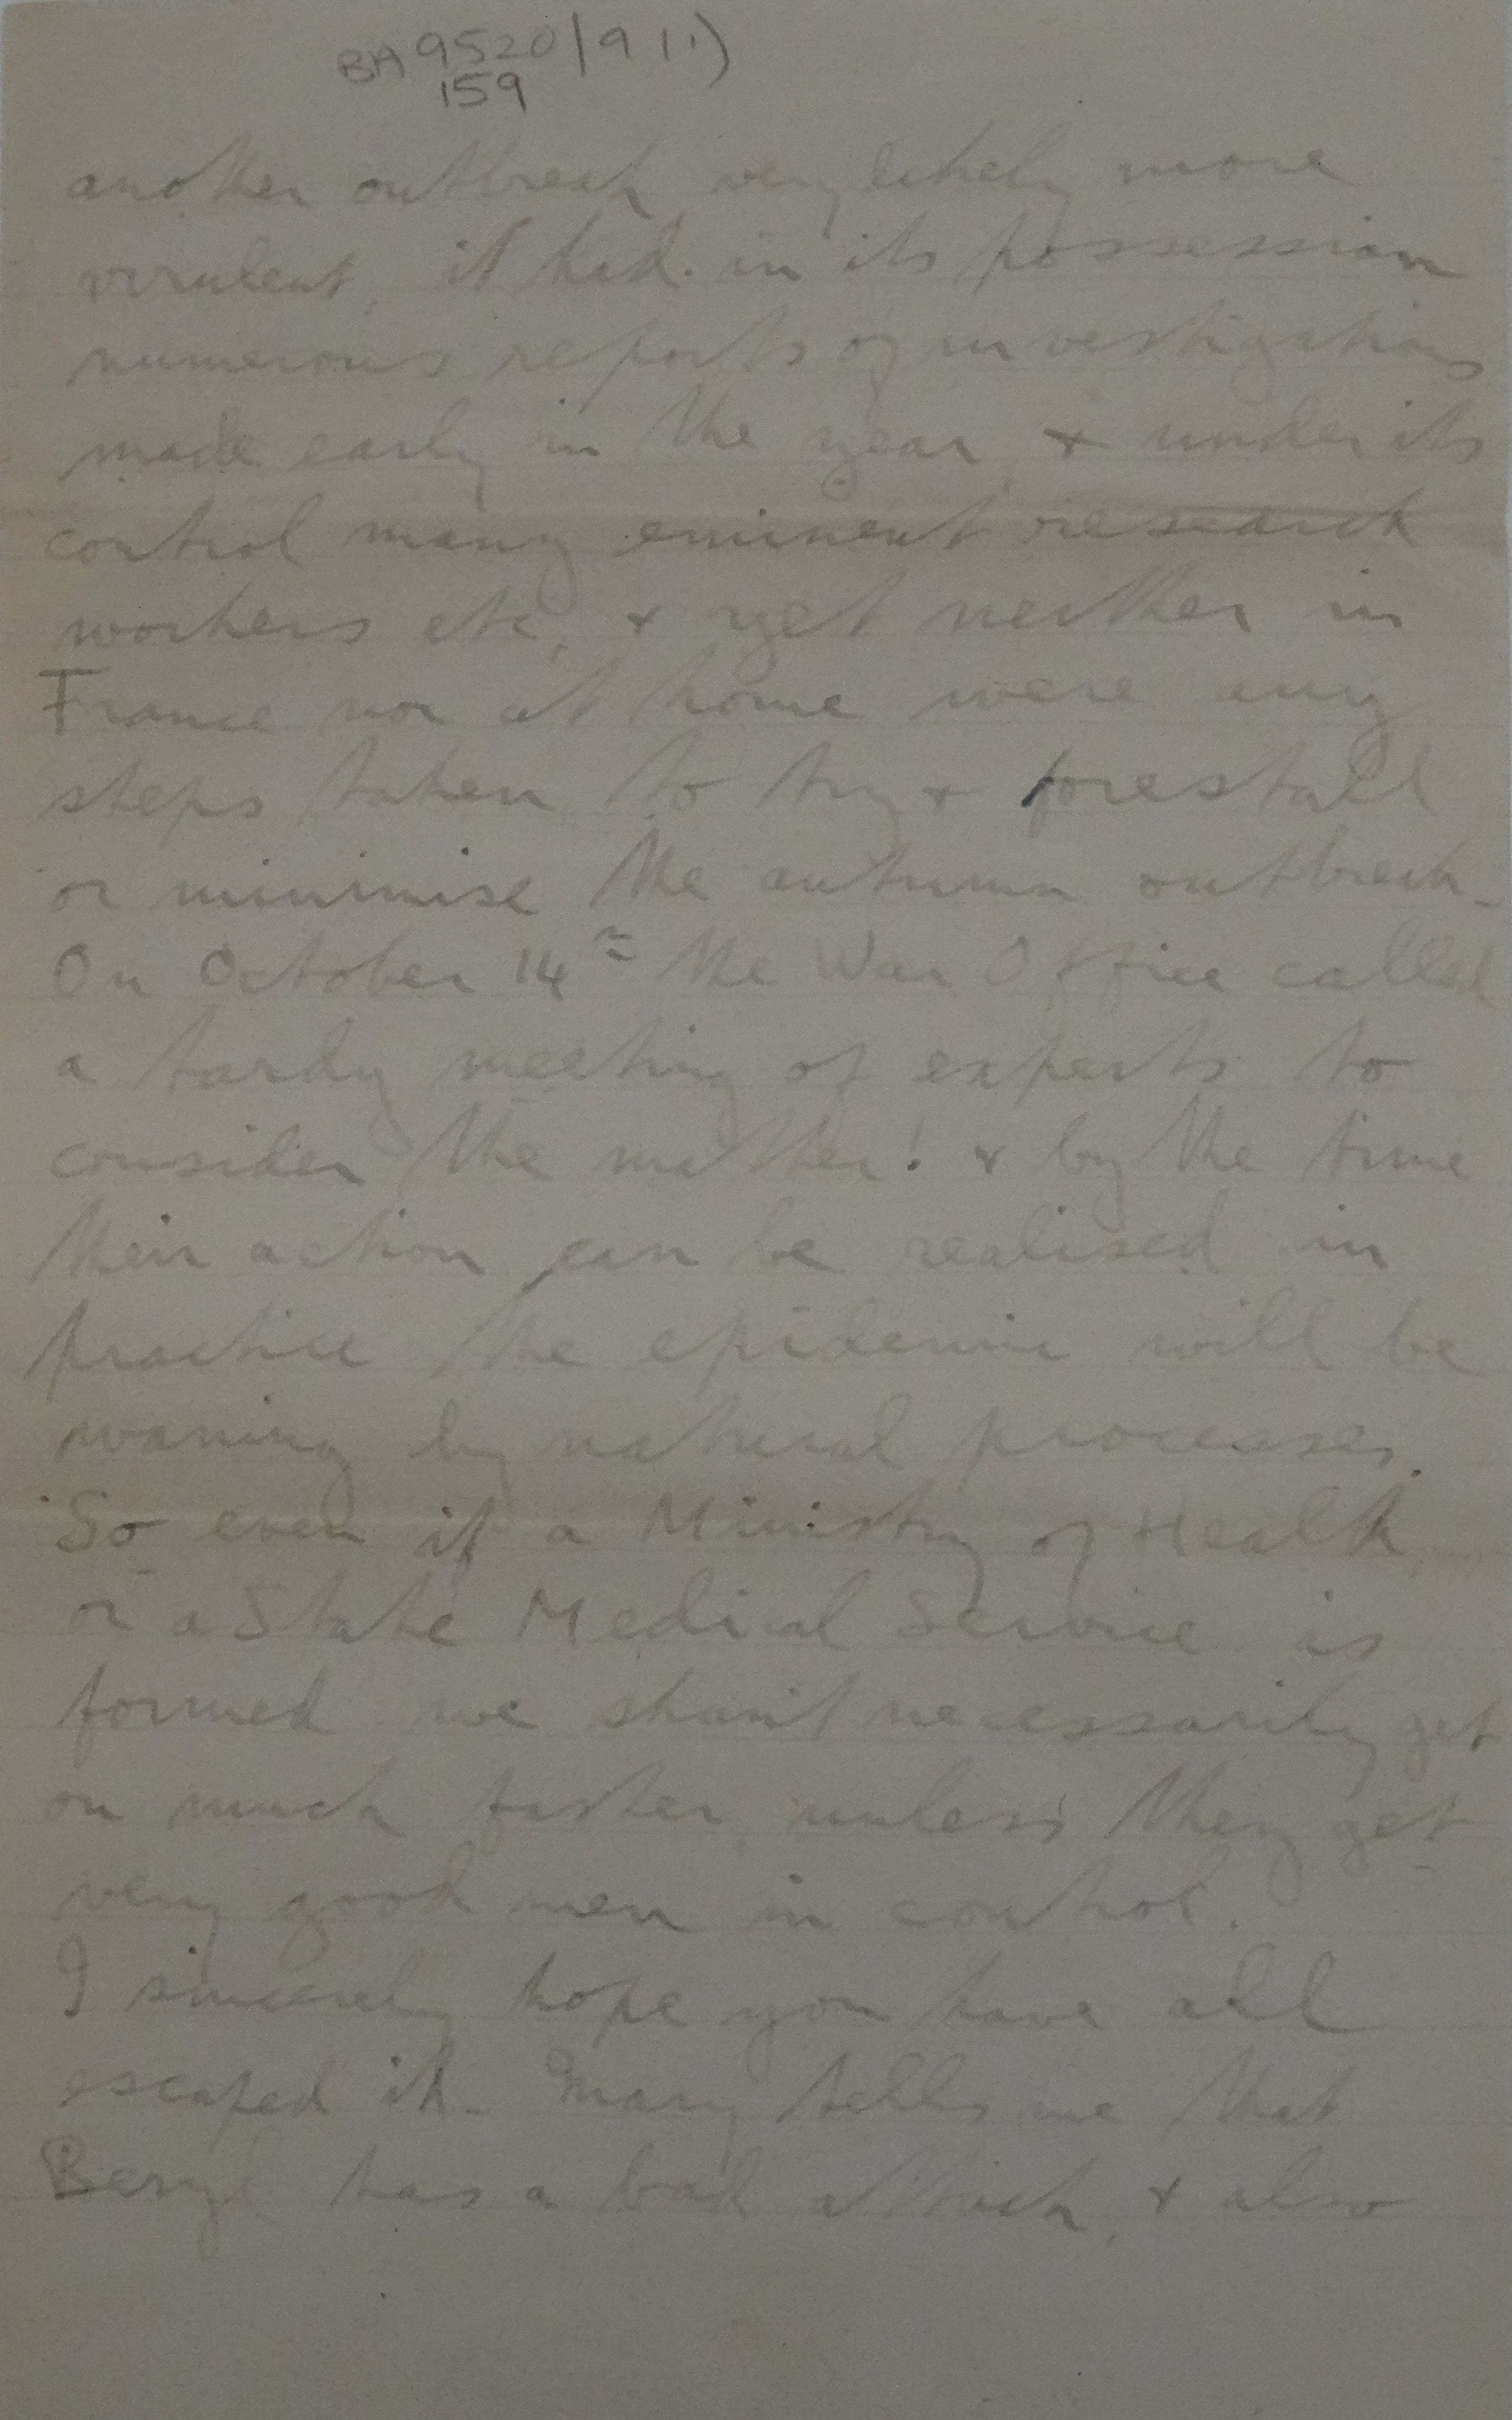 BA 9520/9(1)
159
another outbreak very likely more
virulent, it had in its possession
numerous reports of investigations
made early in the year, & under its
control many eminent research
workers etc, & yet neither in
France nor at home were any
steps taken to try & forestall
or minimise the autumn outbreak.
On October 14th the War Office called
a tardy meeting of experts to
consider the matter! & by the time
their action can be realised in
practice the epidemic will be
waning by natural processes.
So even if a Ministry of Health,
or a State Medical Service is
formed we shan't necessarily get
on much faster, unless they get
very good men in control.
I sincerely hope you have all
escaped it. Mary tells me that
Beryl has a bad attack, & also